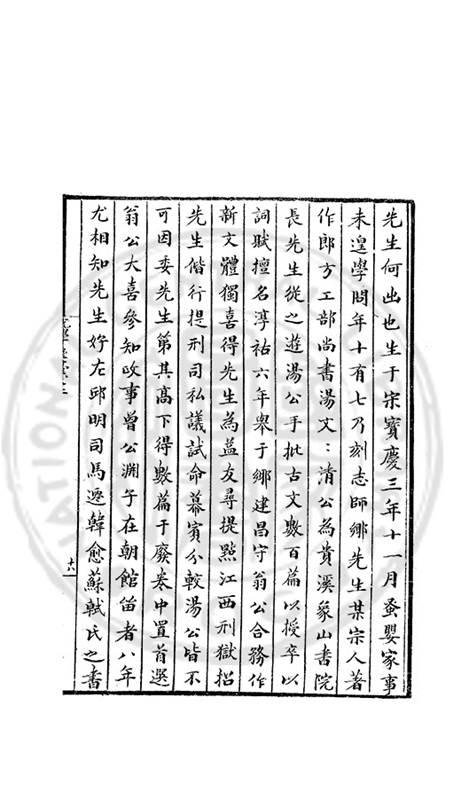 先生何出也生于宋寶慶三年十一月蚤嬰家事
未遑學問年十有七乃刻志師鄉先生某宗人著
作郎方工部尚書湯文：清公為貴溪象山書院
長先生從之遊湯公手批古文數百篇以授卒以
詞賦擅名淳祐六年舉于鄉建昌守翁公合務作
新文體獨喜得先生為益友尋提㸃江西刑獄招
先生偕行提刑司私議試命幕賓分較湯公皆不
可因委先生第其髙下得數篇于廢卷中置首選
翁公大喜參知政事曾公淵子在朝館笛者八年
尤相知先生好左邱明司馬遷韓愈蘇軾氏之書